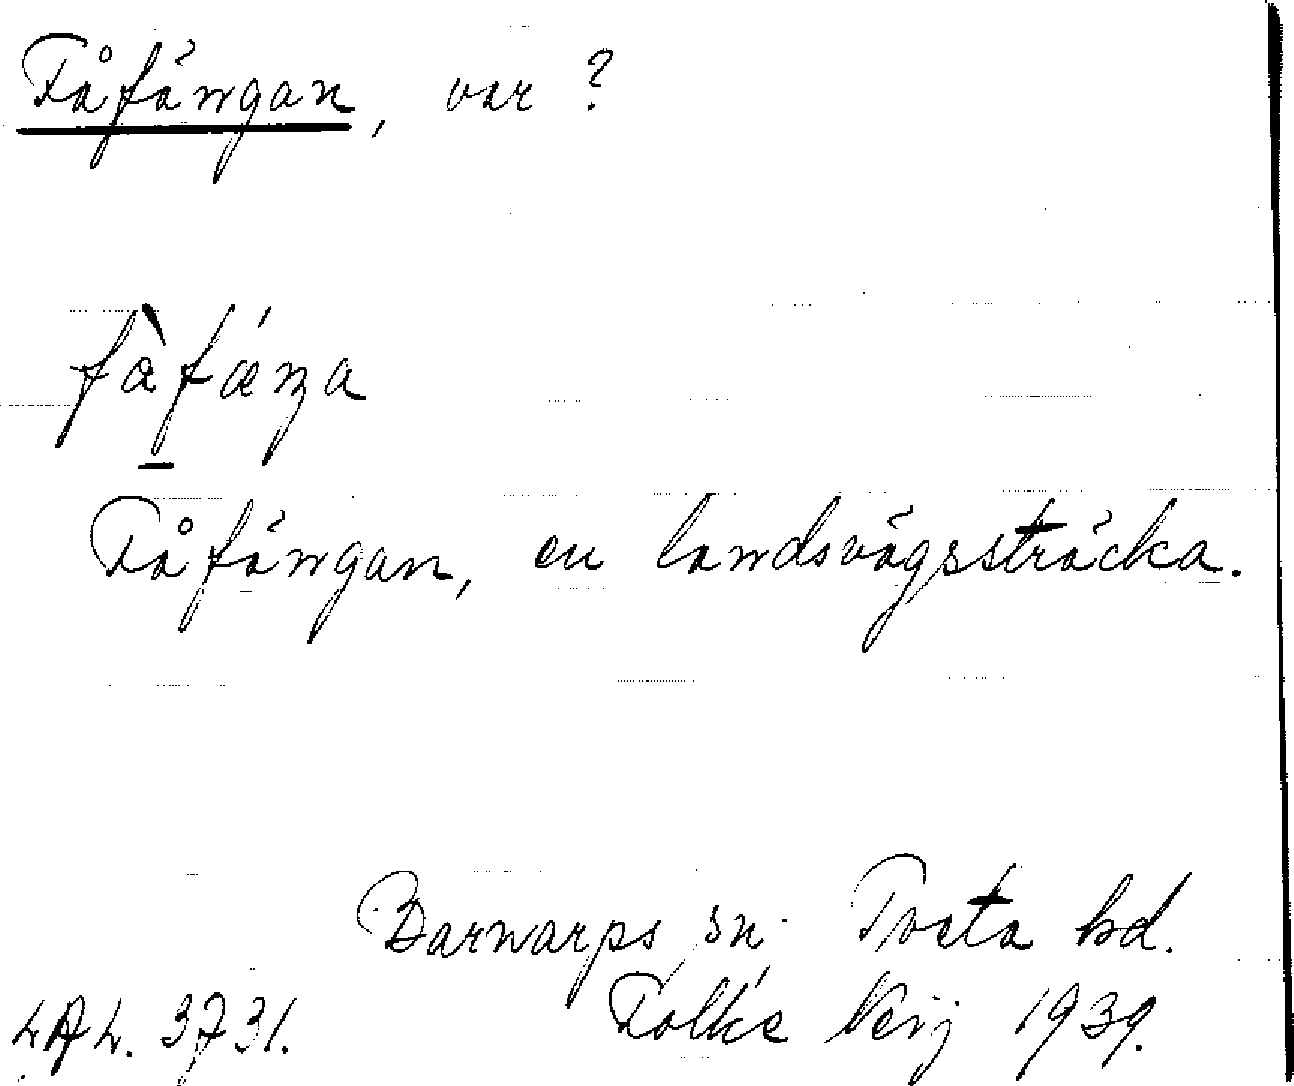 Fåfängan, var?
fàfǽŋa
Fåfängan, en landsvägssträcka.
Barnarps sn. Tveta hd.
LAL. 3731. Folke Neij 1939.